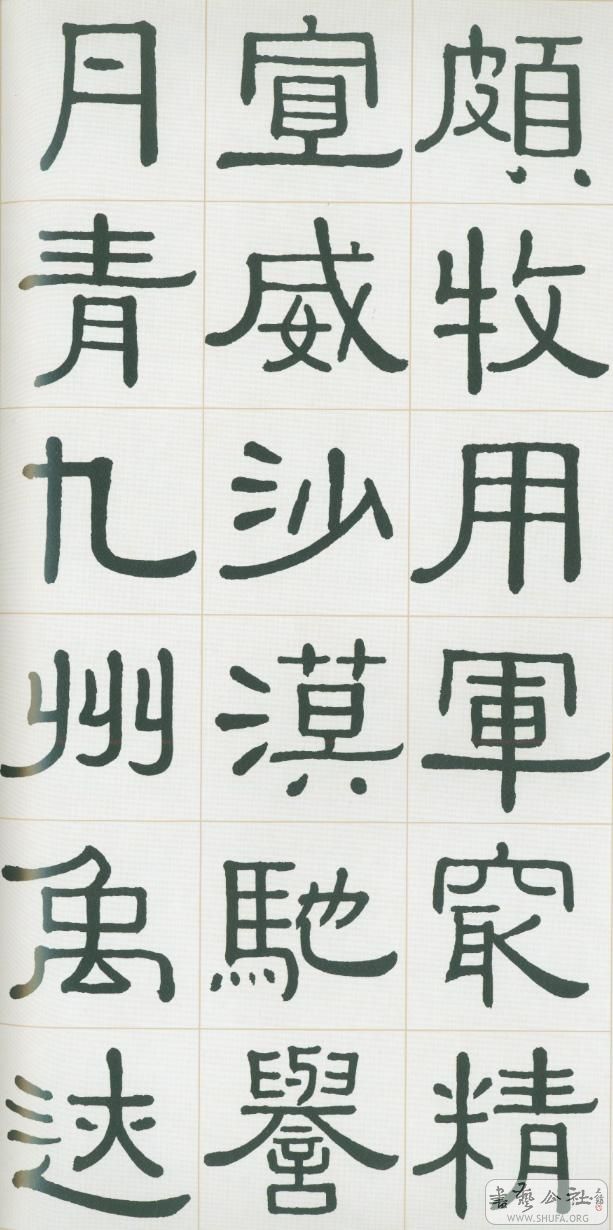 頗牧用軍最精
宣威沙漠馳譽
丹青九州禹迹
書藝公社
WWW.SHUFA.ORG